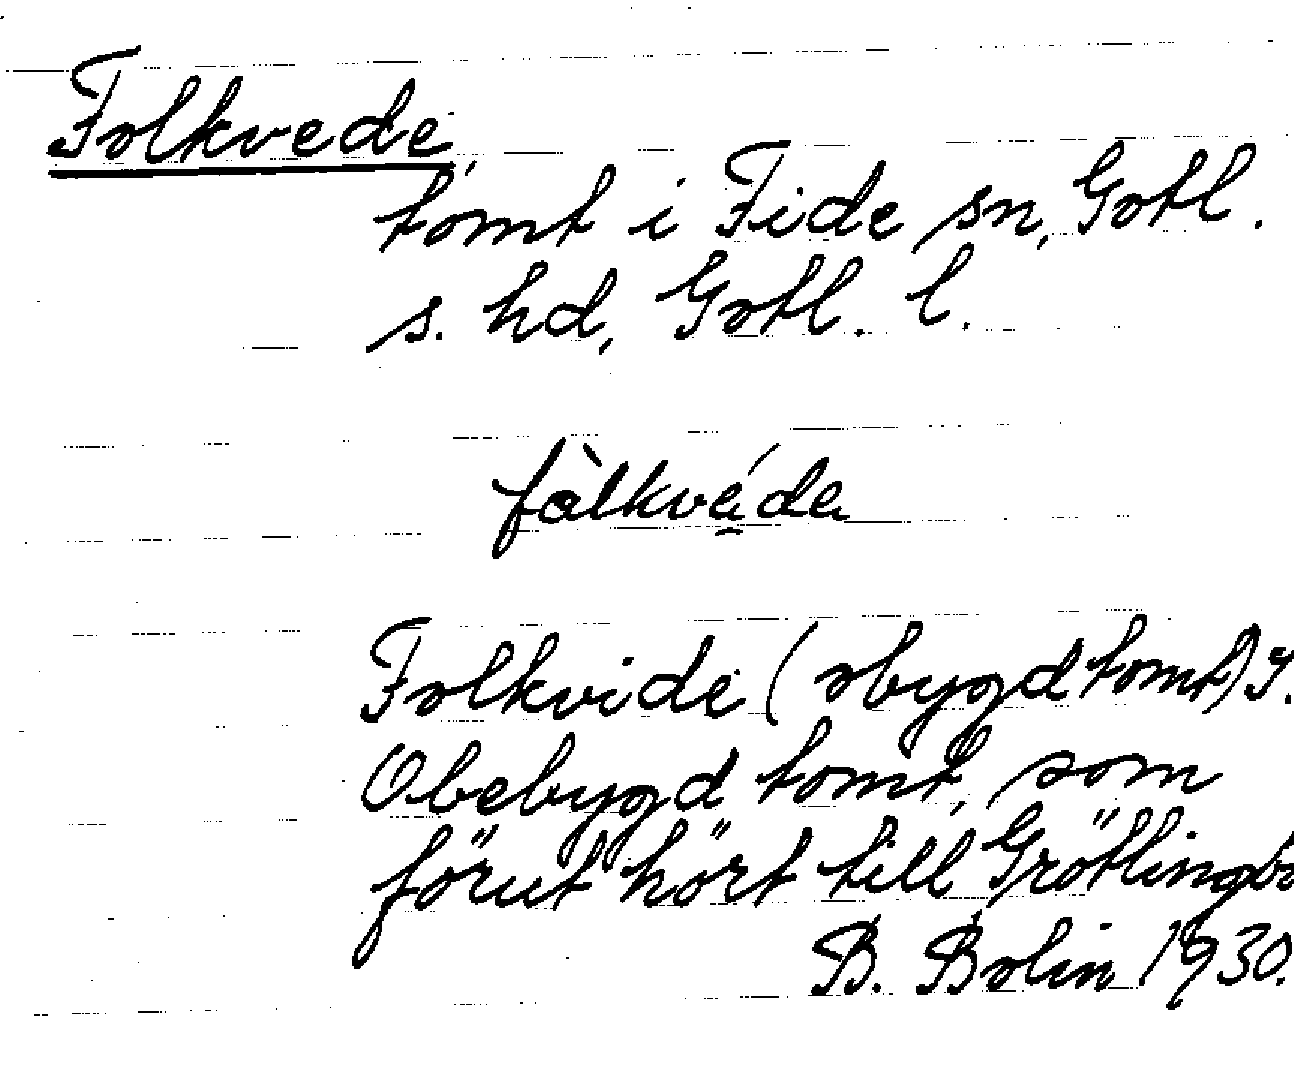 Folkvede,
tomt i Fide sn, Gotl.
s. hd, Gotl. l.
fàlkvé̬da
Folkvide (obygd tomt) J.
Obebygd tomt, som
förut hört till Grötlingbo
B. Bolin 1930.